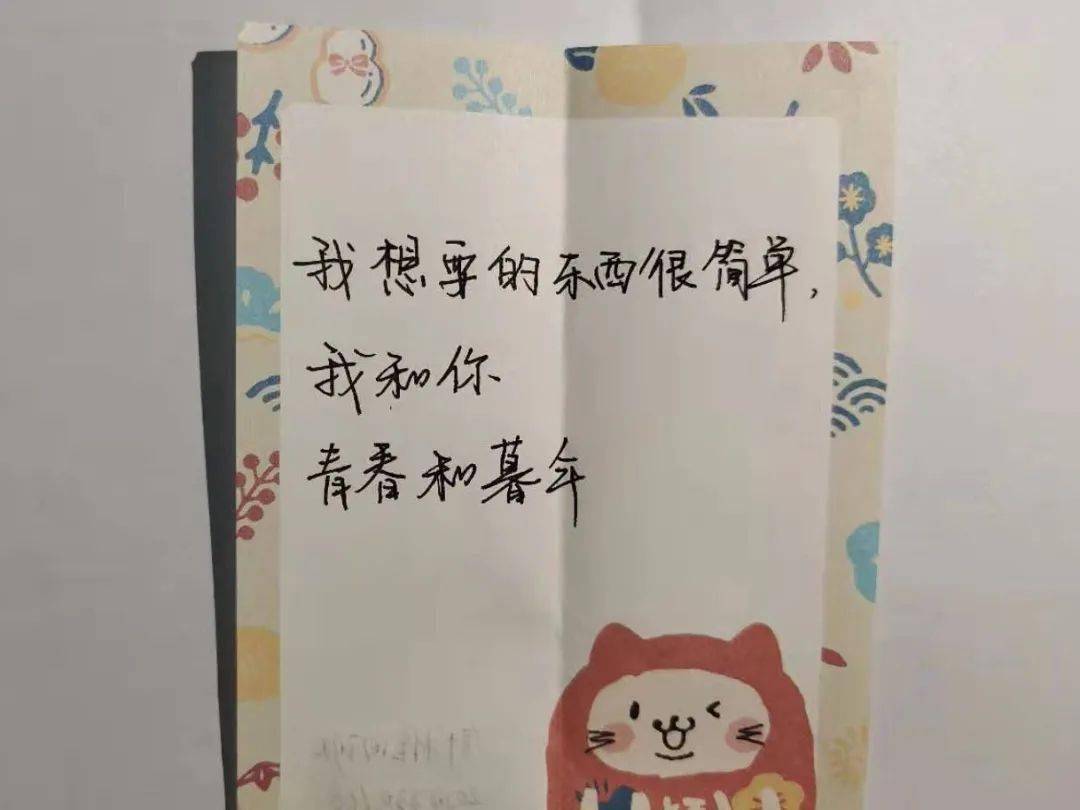 我想要的东西很简单,
我和你
青春和暮年